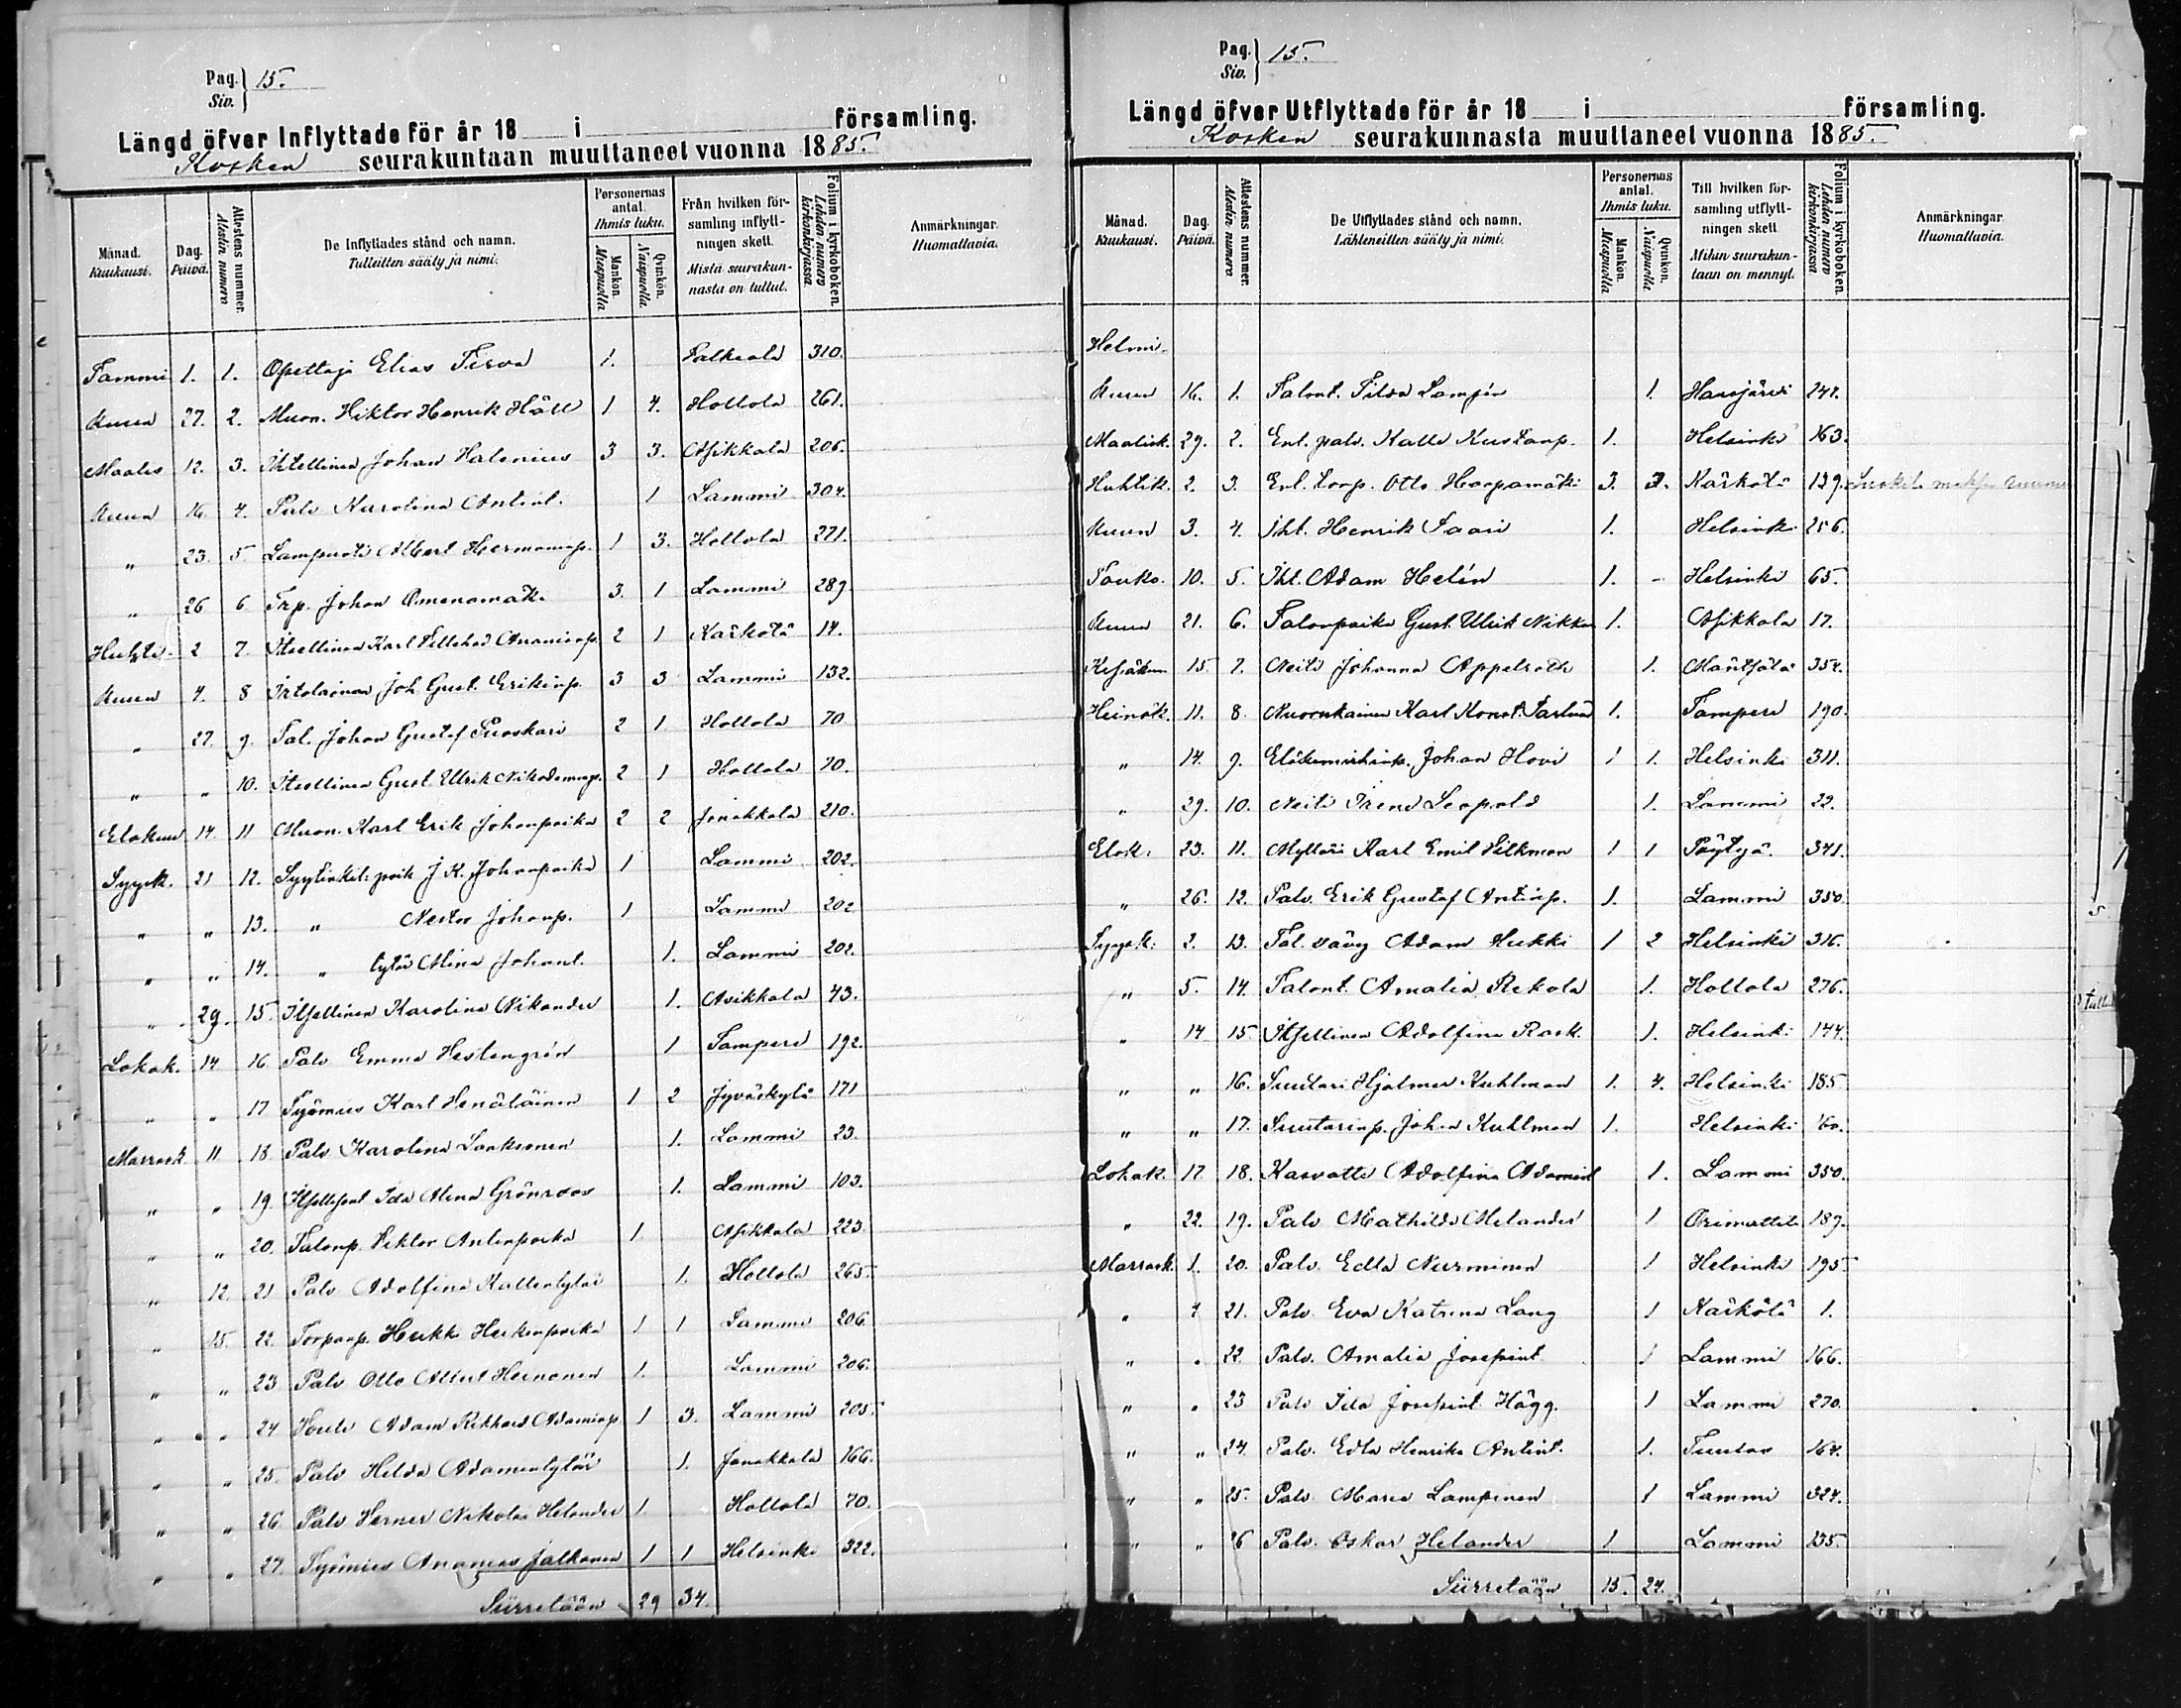 Pag. Siv. } 15.
Längd öfver Inflyttade för år 18 i församling.
Kosken seurakuntaan muuttaneet vuonna 1885.
Månad. Kuukausi. Dag. Päivä. Attestens nummer. Atestin numero De Inflyttades stånd och namn. Tulleitten sääty ja nimi. Personernas antal. Ihmis luku. Mankön. Miespuolia Qvinkön. Naispuolia. Från hvilken församling inflyttningen skett. Mistä seurakunnasta on tullut. Folium i kyrkoboken. Lehden numero kirkonkirjassa. Anmärkningar. Huomattavia.
Tammi 1. 1. Opettaja Elias Tirva 1. Valkeala 310.
kuun 27. 2. Muon. Hiktor Henrik Häll 1 4. Hollola 261.
Maalis 12. 3. Itsellinen Johan Halenius 3 3. Asikkala 206.
kuun 16. 4. Palv Karolina Antint. 1 Lammi 304.
„ 23. 5 Lampuoti Albert Hermaninp. 1 3. Hollola 271.
„ 26 6 Trp. Johan Omenamäki 3. 1 Lammi 289.
Huhti- 2 7. Itsellinen Karl Vellehad Ananinp. 2 1 Kärkölä 14.
kuun 4. 8 Irtolainen Joh. Gust. Erikinp. 3 3 Lammi 132.
„ 27. 9. Tal. Johan Gustaf Puoskari 2 1. Hollola 70
„ „ 10. Itsellinen Gust. Ulrik Nikodemusp. 2 1 Hollola 70.
Elokuu 14. 11 Muon. Karl Erik Johanpoika 2 2 Janakkala 210.
Syysk. 21 12. Syytinkil: poik J. K. Johanpoika 1 Lammi 202.
„ „ 13. „ Nestor Johanp. 1 Lammi 202
„ „ 14. „ tytär Mina Johant. 1. Lammi 202.
„ 29. 15. Itsellinen Karolina Nikander 1. Asikkala 43.
Lokak. 14 16. Palv Emma Hestengrén 1 Tampere 192.
„ „ 17 Työmies Karl Venäläinen 1 2 Jyväskylä 171
Marrask. 11 18 Palv Karolina Laaksonen 1. Lammi 23.
„ „ 19. Itsellisent Ida Alina Grönroos 1. Lammi 103.
„ „ 20. Talonp. Viktor Antinpoika 1 Asikkala 223.
„ 12. 21 Palv Adolfina Kallentytär 1. Hollola 265.
„ 15. 22. Torparp. Heikki Heikinpoika 1 1 Lammi 206.
„ „ 23. Palv Otto Albert Heinonen 1. Lammi 206.
„ „ 24 Adam Rikhard Adaminp 1 3. Lammi 205.
„ „ 25. Palv Hilda Adamintytär 1. Janakkala 166.
„ „ 26. Palv Verner Nikolai Helander 1. Hollola 70.
„ „ 27. Työmies Ananias Jalkanen 1 1 Helsinki 322.
Siirretään 29 34.
Pag. Siv. } 15.
Längd öfver Utflyttade för år 18 i församling.
Kosken seurakunnasta muuttaneet vuonna 1885.
Månad. Kuukausi. Dag. Päivä. Attestens nummer. Atestin numero De Utflyttades stånd och namn. Lähteneitten sääty ja nimi. Personernas antal. Ihmis luku. Mankön. Miespuolia Qvinkön. Naispuolia. Till hvilken församling utflyttningen skett. Mihin seurakuntaan on mennyt. Folium i kyrkoboken. Lehden numero kirkonkirjassa Anmärkningar. Huomattavia.
Helmi-
kuun 16. 1. Talont. Tilda Lampén 1. Hausjärvi 247.
Maalisk. 29. 2. Ent. palv. Kalle Kustaap. 1. Helsinki 163.
Huhtik. 2. 3. Ent. torp. Otto Haapamäki 3. 3. Kärkölä 139.
kuun 3. 4. Iht. Henrik Saari 1. Helsinki 256.
Touko. 10. 5. Iht. Adam Helén 1. - Helsinki 65.
kuun 21. 6. Talonpoika Gust. Ulrik Nikku 1. Asikkala 17.
Kesäkuu 15 7. Neiti Johanna Appelroth 1. Mäntsälä 354.
Heinäk. 11. 8. Nuorukainen Karl Konst. Varlund 1. Tampere 190.
„ 14. 9. Johan Hovi 1 1. Helsinki 311.
„ 29. 10. Neiti Irene Leopold 1. Lammi 22.
Elok. 23. 11. Mylläri Karl Emil Silkman 1 1 Pöytyä. 341.
„ 26. 12. Palv. Erik Gustaf Antinp. 1. Lammi 350.
Syysk. 2. 13. Tal. vävy Adam Hukki 1 2 Helsinki 316.
„ 5. 14. Talont. Amalia Rekola 1. Hollola 276.
„ 14 15 Itsellinen Adolfina Rask. 1. Helsinki 144.
„ „ 16. Suutari Hjalmar Kuhlman 1. 4. Helsinki 185
„ „ 17. Suutarinp. Johan Kuhlman 1. Helsinki 60.
Lokak. 17 18. Kasvatti Adolfina Adamint 1. Lammi 350.
„ 22. 19. Palv Mathilda Melander 1 Orimattila 189.
Marrask. 1. 20. Palv. Edla Nurminen 1 Helsinki 195
„ 7 21. Palv. Eva Katrina Lang 1 Kärkölä 1.
„ „ 22 Palv. Amalia Josefint 1 Lammi 166.
„ „ 23 Palv Ida Josefint Hägg. 1 Lammi 270.
„ „ 24. Palv. Edla Henrika Antint. 1. Tuulos 164.
„ „ 25. Palv Maria Lampinen 1 Lammi 324.
„ „ 26 Palv. Oskar Helander 1 Lammi 235.
Siirretään 15. 24.